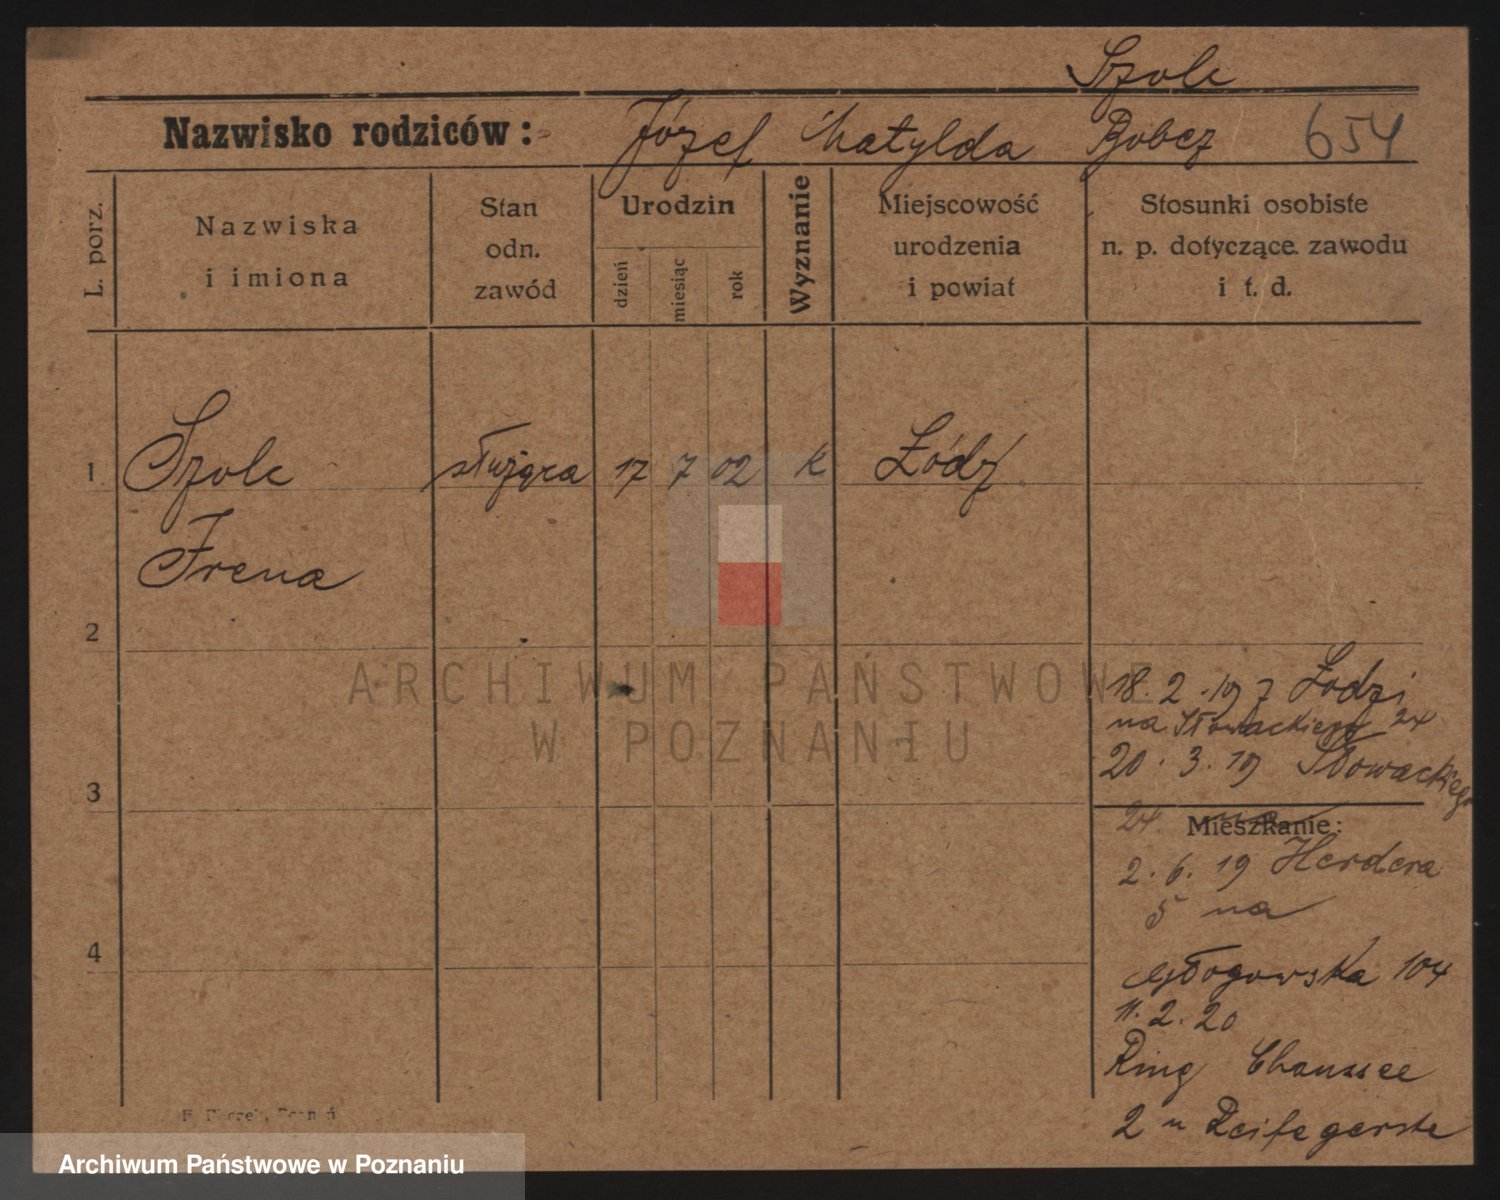 Szolc
Nazwisko rodziców: Józef Matylda Bobcz 654
L. porz.
Nazwiska i imiona
Stan odn. zawód
Urodzin
dzień
miesiąc
rok
Wyznanie
Miejscowość urodzenia i powiat
Stosunki osobiste n. p. dotyczące zawodu i t. d.
1 Szolc służąca 17 7 02 k Łódź
Irena
2
18. 2. 19 z Łodzi
na Słowackiego 24
20. 3. 19 Słowackiego
3
24. na
Mieszkanie:
2. 6. 19 Herdera
5 na
4
Głogowska 104
11. 2. 20
Ring Chaussee
2 u Reifegerste
ARCHIWUM PAŃSTWOWE
W POZNANIU
Archiwum Państwowe w Poznaniu